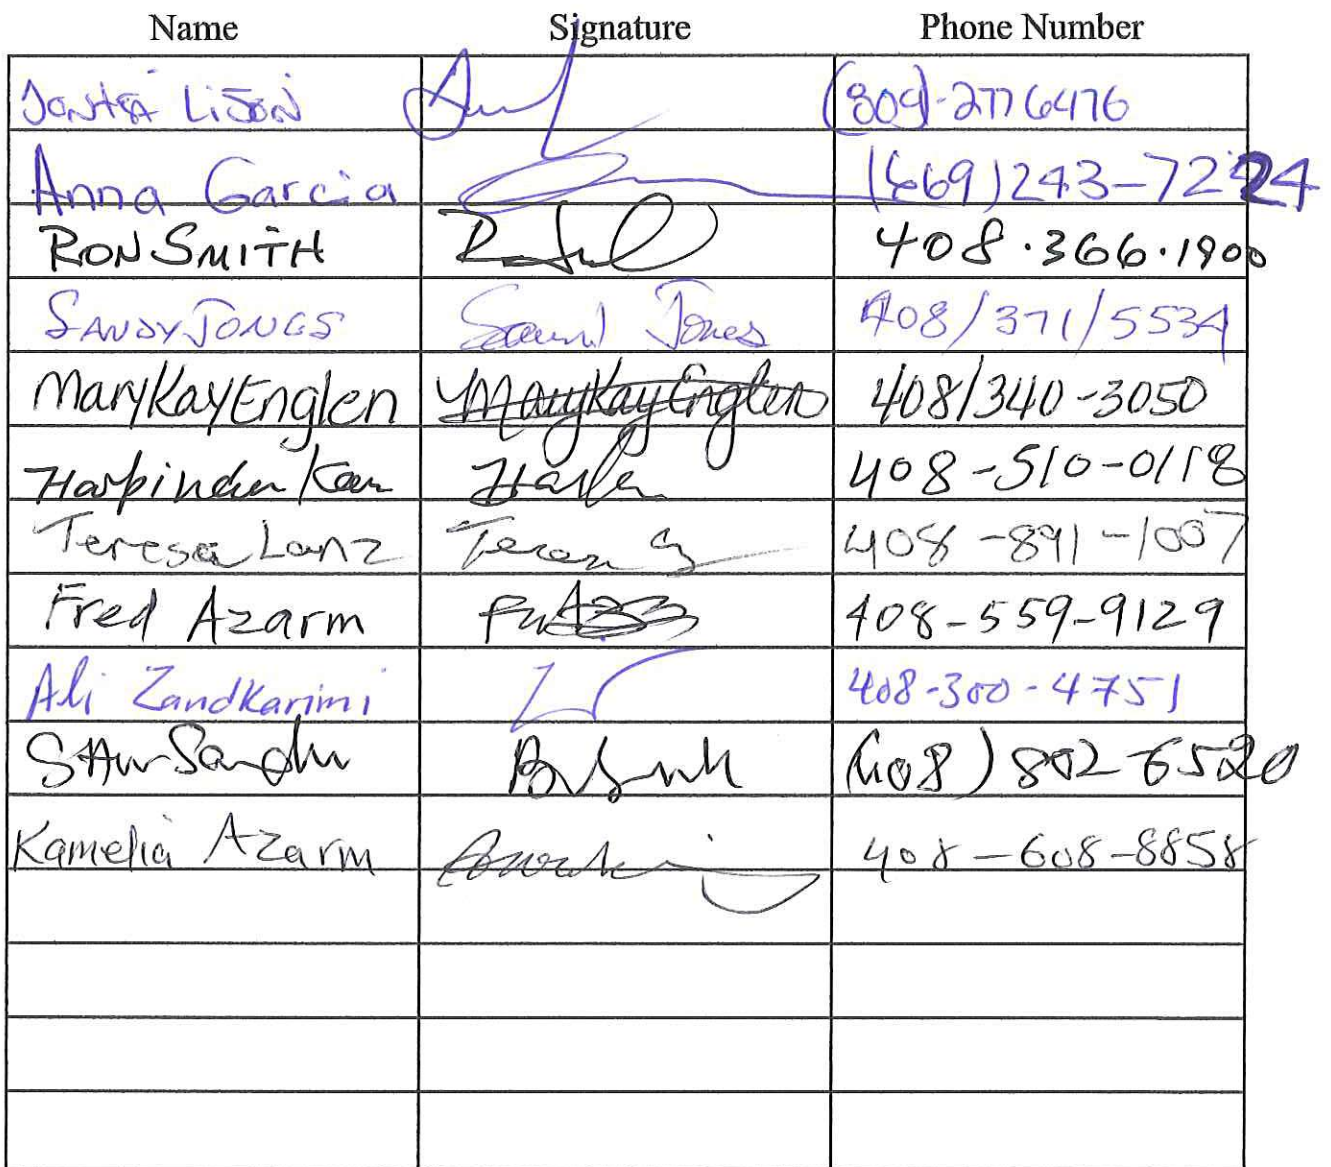 Name Signature Phone Number
(809)-2776476
Anna Garcia (669)243-7224
RON SMITH 408.366.1900
SANDY JONES Jones 408/371/5534
MaryKay Englen MaryKay Englen 408/340-3050
Harpinder Kaur 408-510-0118
Teresa Lanz Teresa 408-891-1007
Fred Azarm 408-559-9129
Ali Zandkarimi 408-300-4751
Sandhu (408) 802-6520
Kamelia Azarm 408-608-8858